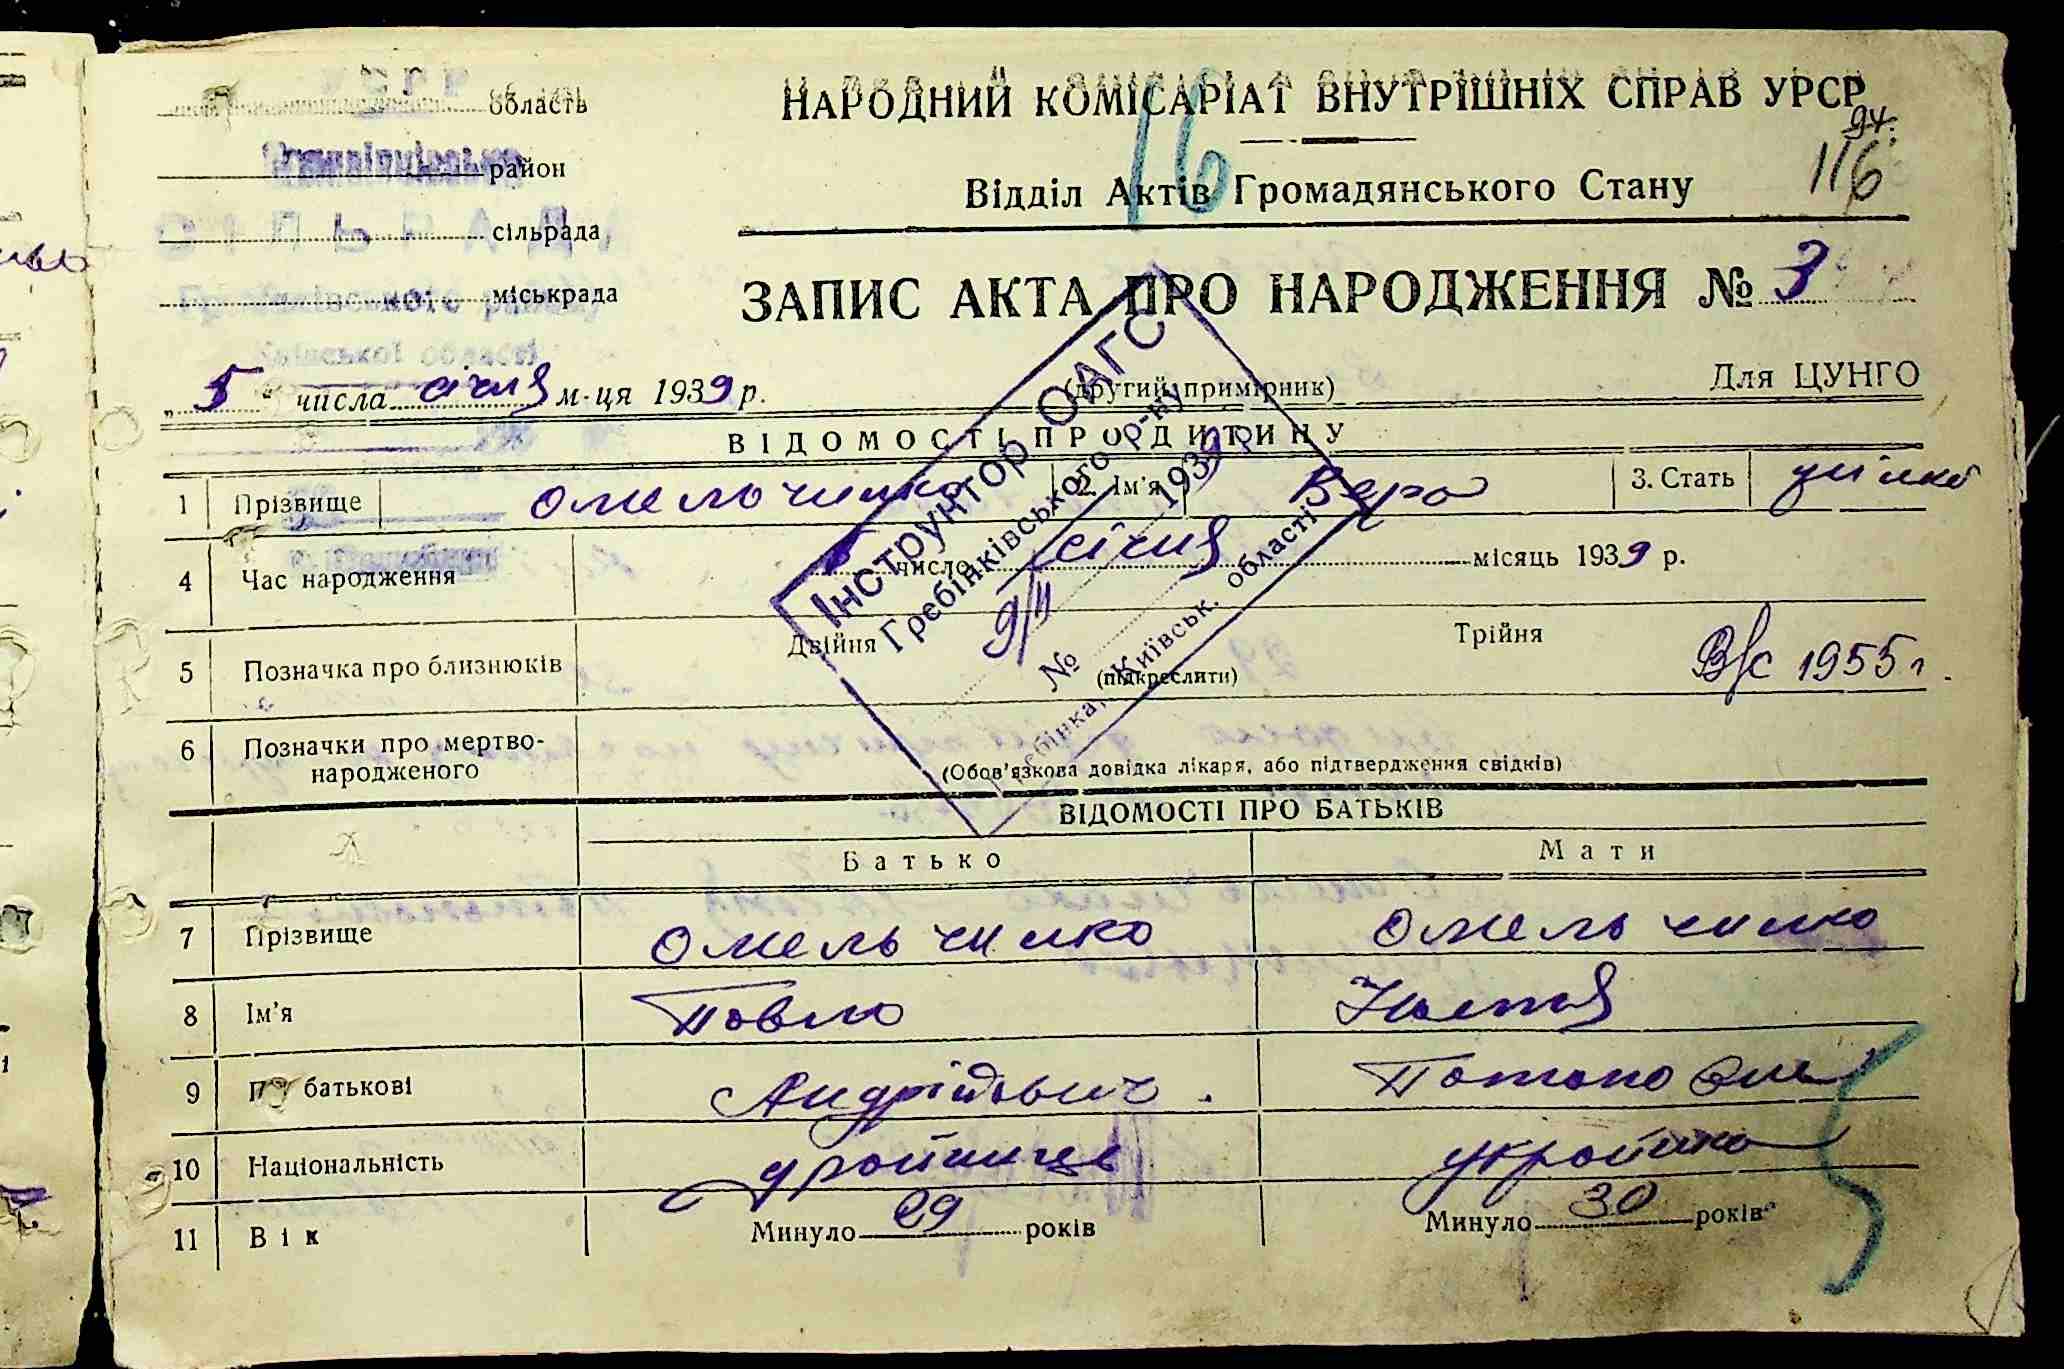 УСРР
область
район
СІЛЬРАДА
сільрада,
міськрада
Київської області
НАРОДНИЙ КОМІСАРІАТ ВНУТРІШНІХ СПРАВ УРСР
94.
116
16
Відділ Актів Громадянського Стану
ЗАПИС АКТА ПРО НАРОДЖЕННЯ № 3
„ 5 “ числа січня м-ця 1939 р.
(другий примірник)
Для ЦУНГО
ВІДОМОСТІ ПРО ДИТИНУ
1 Прізвище Омельченко 2. Ім'я Вера 3. Стать жіноч
4 Час народження число січня місяць 1939 р.
5 Позначка про близнюків Двійня Трійня
(підкреслити)
В/с 1955 г.
6 Позначки про мертво-
народженого
(Обов'язкова довідка лікаря, або підтвердження свідків)
Інструнтор ОАГС
Гребінківського р-ну
9/II 1939 р
№
Гребінка, Київськ. області
ВІДОМОСТІ ПРО БАТЬКІВ
Батько Мати
7 Прізвище Омельченко Омельченко
8 Ім'я Павло Настя
9 По батькові Андрійович.
10 Національність українець українка
11 Вік Минуло 29 років Минуло 30 років